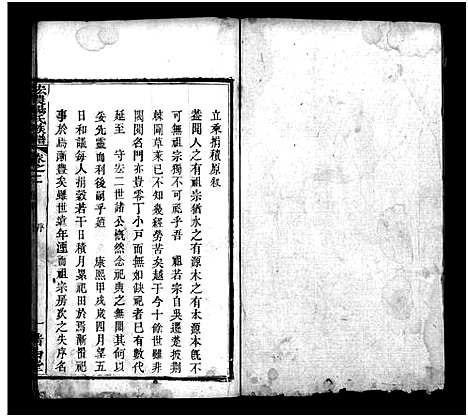 立乘捐積原叙
蓋聞人之有祖宗猶水之有源木之有本源本旣不
可無祖宗獨不可祀乎吾 祖若宗自吳遷楚披荆
棘闢草萊不已幾經勞苦矣越于今十餘世雖非
閥閱名門亦豈零丁小戶而無如缺祀者已有數代
延至 守 二世諸公慨然念祀典之無聞其何以
妥先靈而利後嗣乎 康熙甲戌歲四月望五
日和議每人捐穀若干日積月累祀田於焉漸增祀
事於焉漸豊矣雖世革年湮而祖宗房欢之失序名
氏族譜
卷之